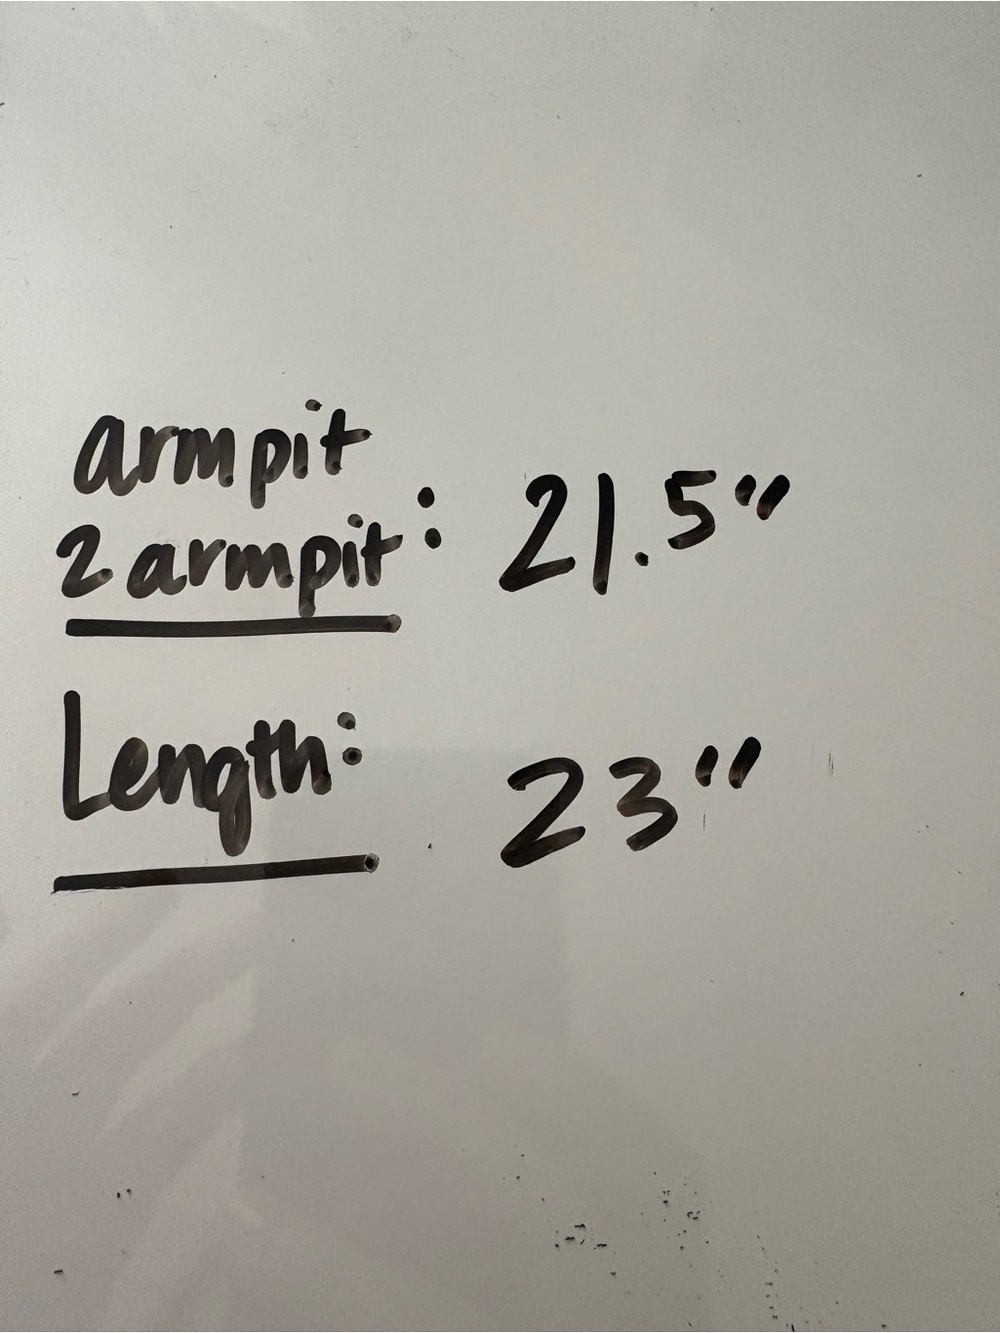 armpit
2 armpit: 21.5"
Length: 23"